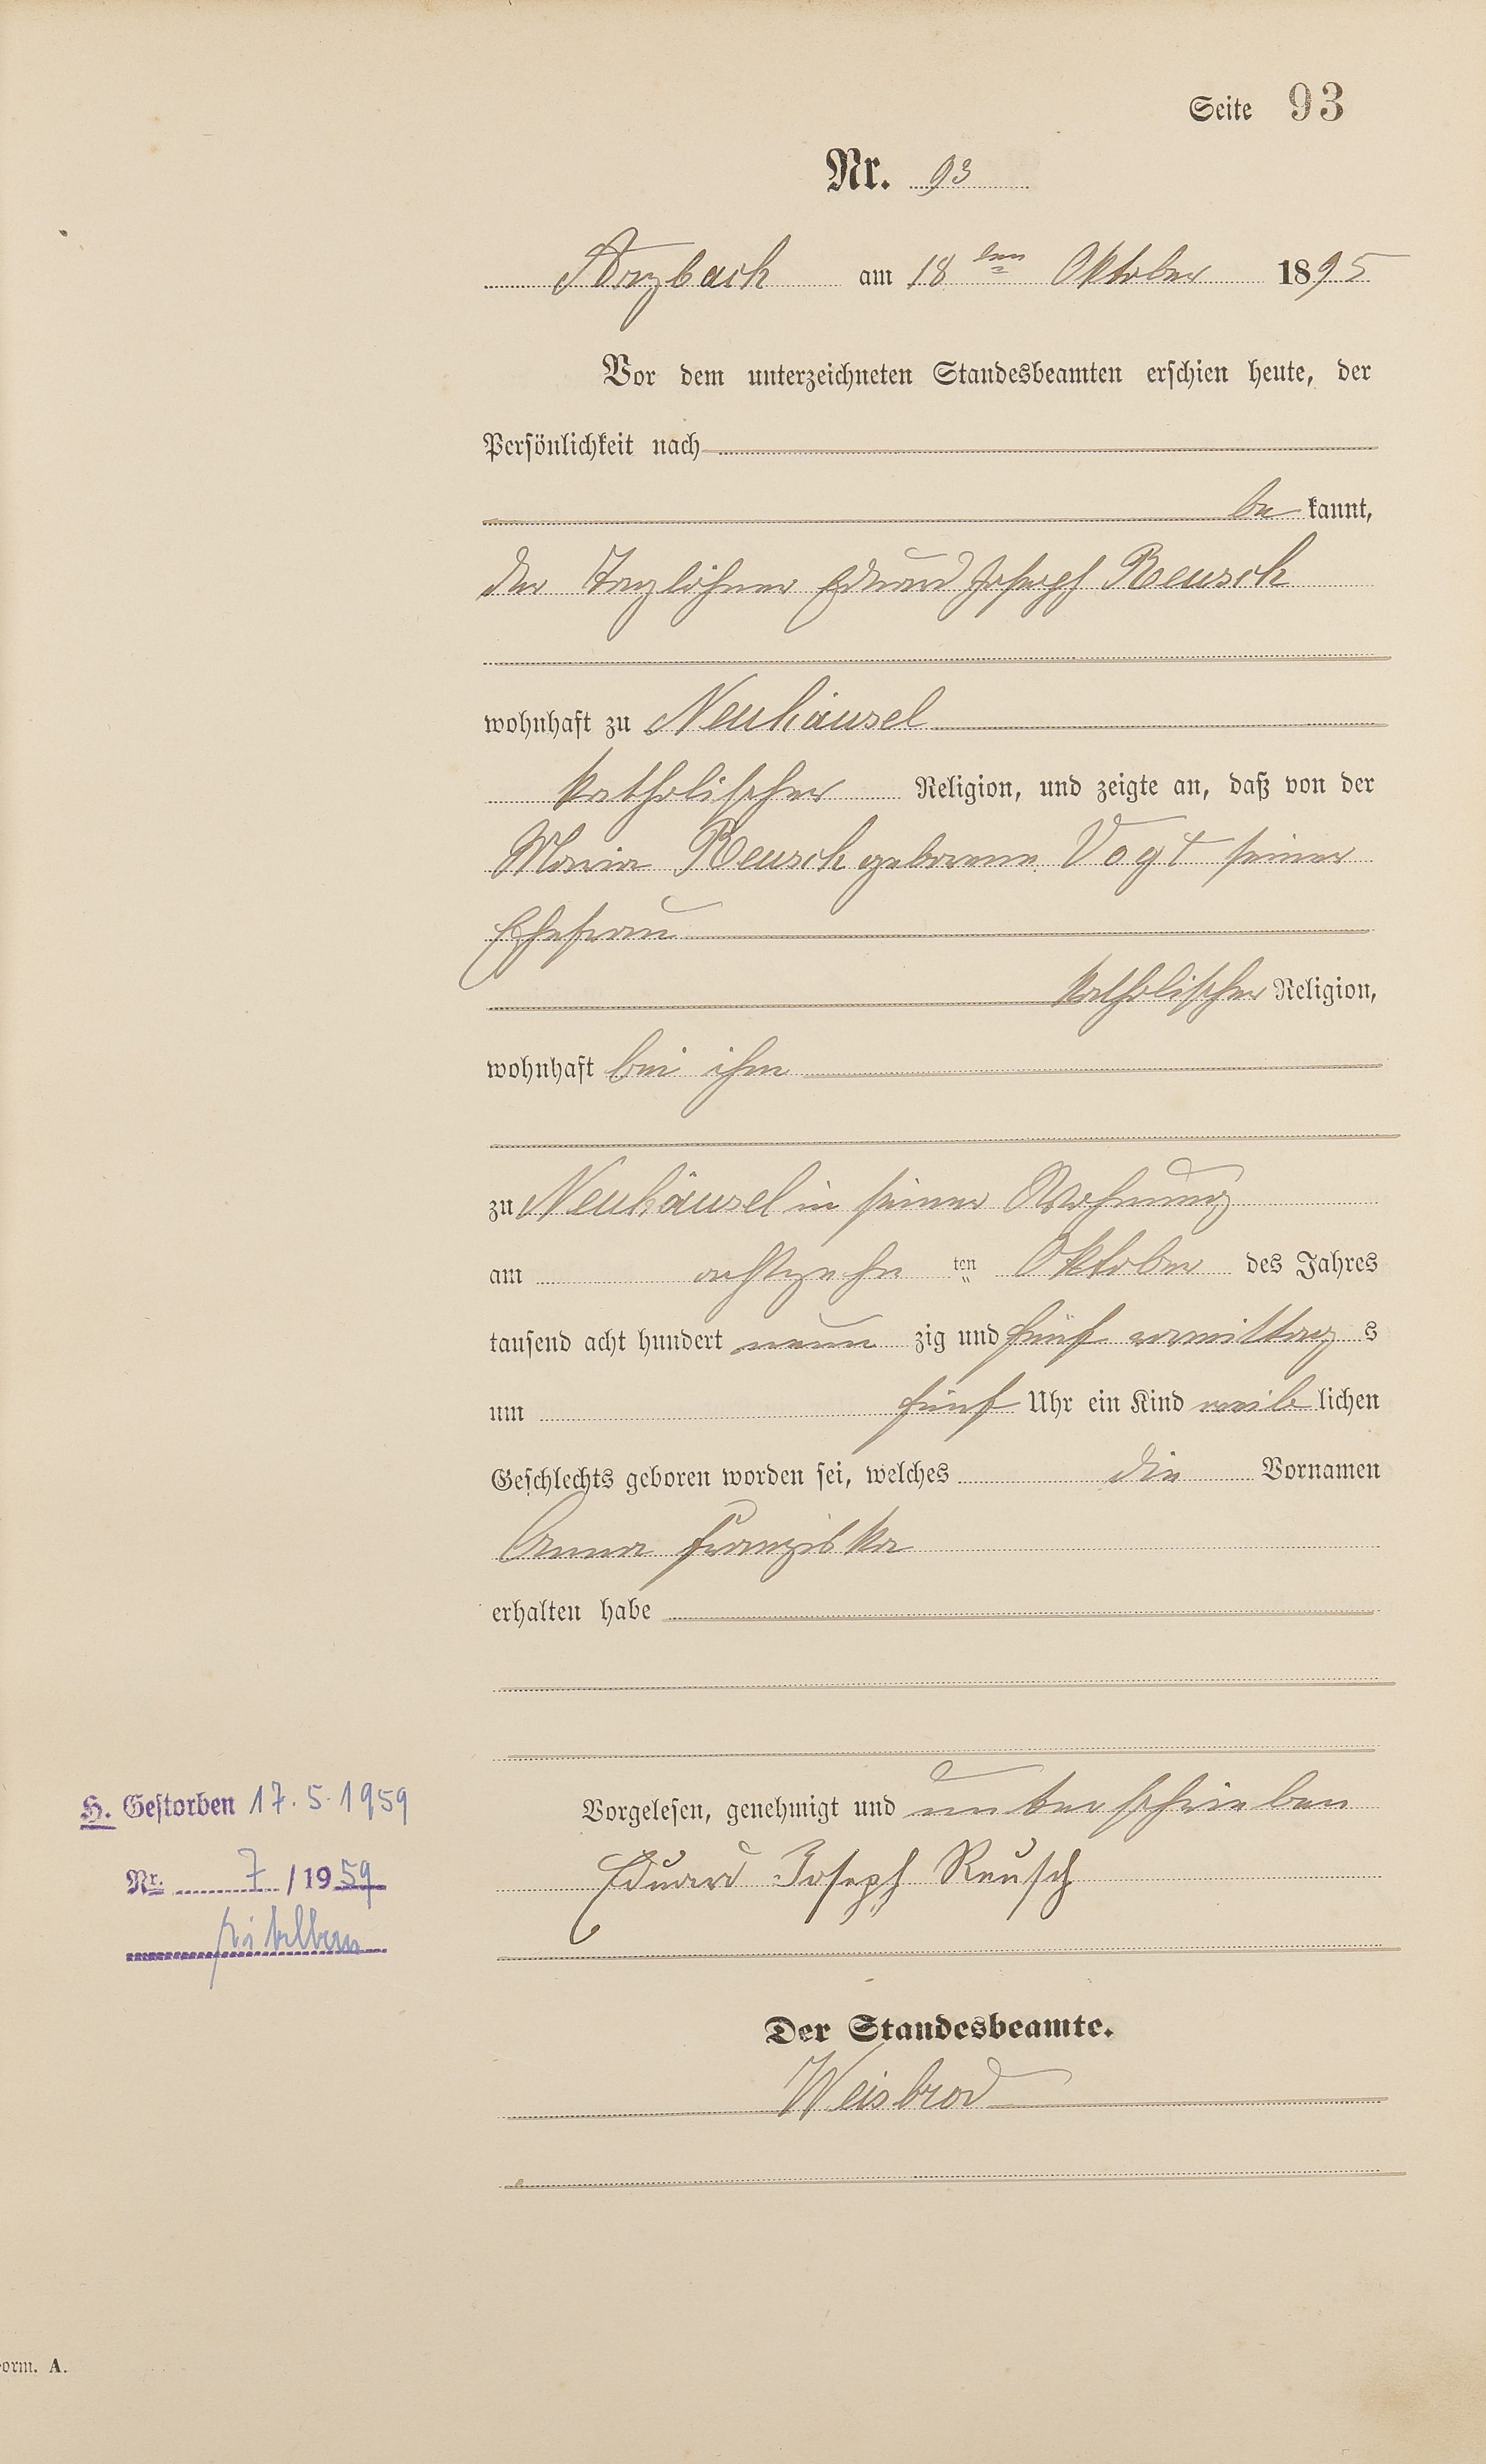 Seite 93
Nr. 93
Arzbach am 18ten Oktober 1895
Vor dem unterzeichneten Standesbeamten erschien heute, der
Persönlichkeit nach
bekannt,
der Taglöhner Eduard Joseph Reusch
wohnhaft zu Neuhäusel
katholischer Religion, und zeigte an, daß von der
Maria Reusch geborene Vogt seiner
Ehefrau
katholischer Religion,
wohnhaft bei ihm
zu Neuhäusel in seiner Wohnung
am achtzehnten Oktober des Jahres
tausend acht hundert neunzig und fünf vormittags
um fünf Uhr ein Kind weiblichen
Geschlechts geboren worden sei, welches die Vornamen
Anna Franziska
erhalten habe
Vorgelesen, genehmigt und unterschrieben
Eduard Joseph Reusch
Der Standesbeamte.
Weisbrod
H. Gestorben 17.5.1959
Nr. 7/1959
orm. A.